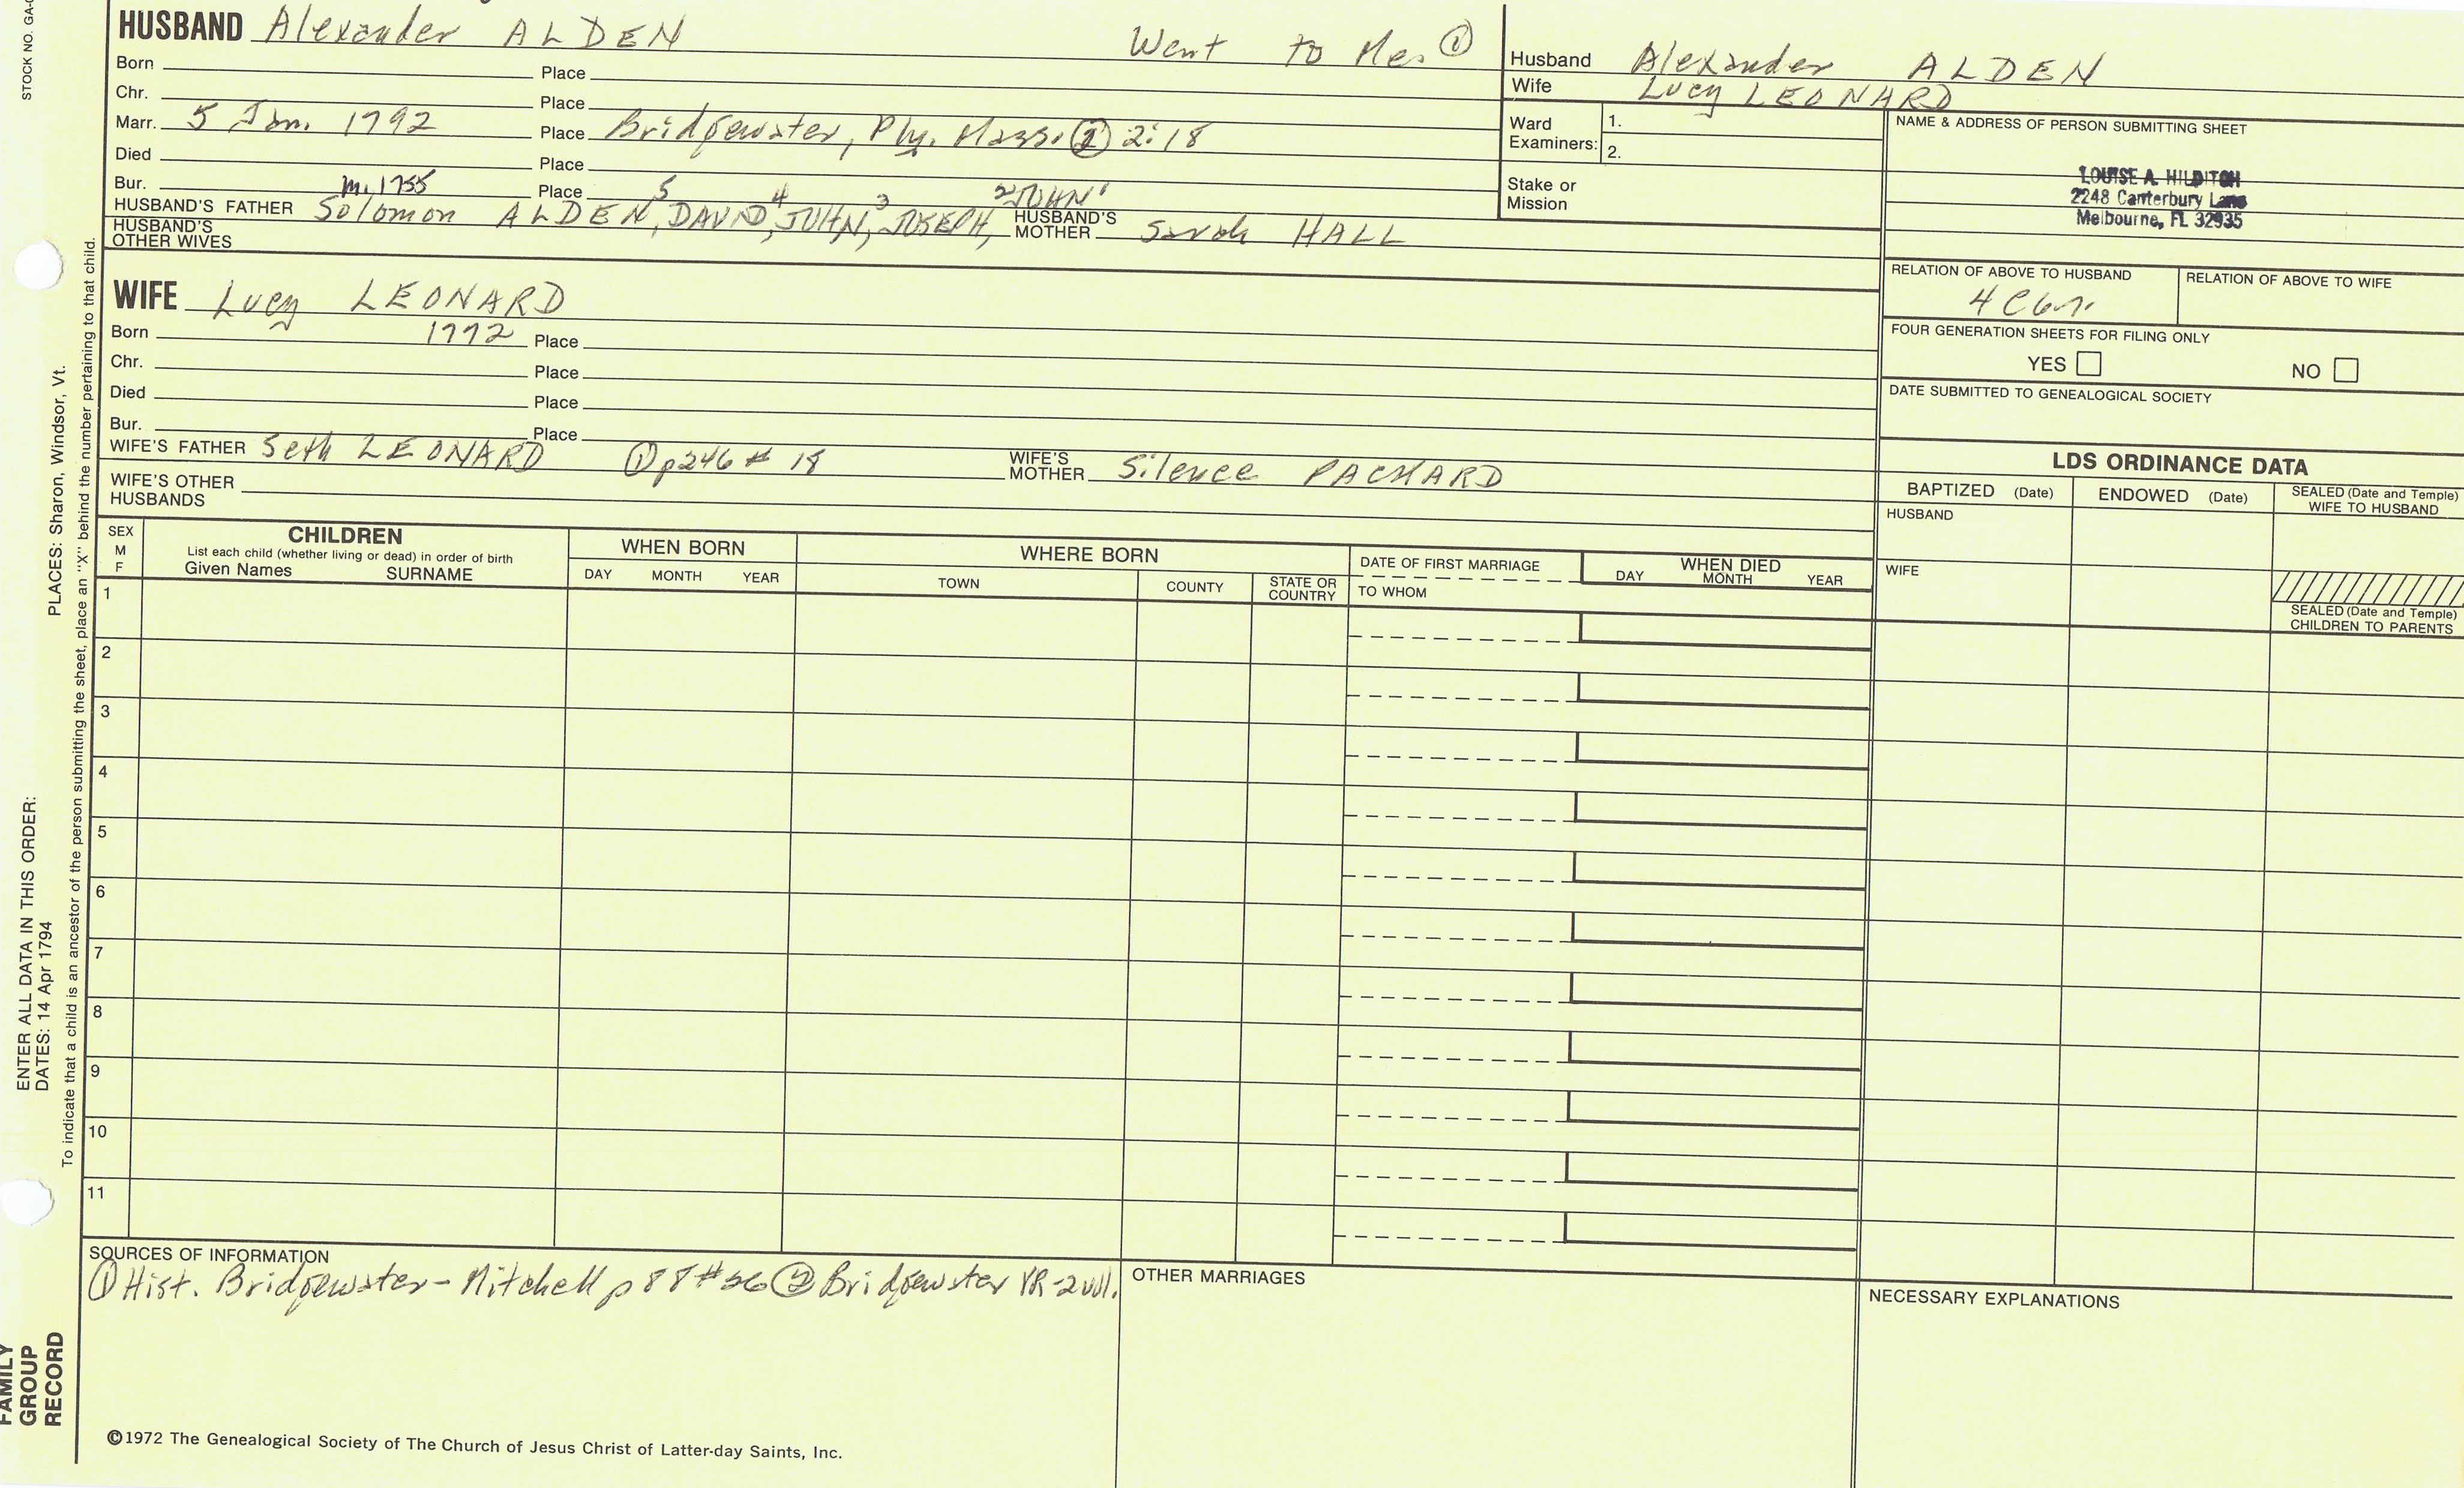 STOCK NO. GA-
HUSBAND Alexander ALDEN Went to Me. ①
Born Place
Chr. Place
Marr. 5 Jan. 1792 Place Bridgewater, Ply. Mass. ② 2:18
Died Place
Bur. m. 1755 Place
HUSBAND'S FATHER Solomon ALDEN 5, DAVID 4, JOHN 3, JOSEPH 2, JOHN 1 HUSBAND'S MOTHER Sarah HALL
HUSBAND'S OTHER WIVES
Husband Alexander ALDEN
Wife Lucy LEONARD
Ward Examiners: 1.
2.
Stake or Mission
NAME & ADDRESS OF PERSON SUBMITTING SHEET
LOUISE A. HILDITCH
2248 Canterbury Lane
Melbourne, FL 32935
RELATION OF ABOVE TO HUSBAND RELATION OF ABOVE TO WIFE
FOUR GENERATION SHEETS FOR FILING ONLY
YES NO
DATE SUBMITTED TO GENEALOGICAL SOCIETY
WIFE Lucy LEONARD
Born 1772 Place
Chr. Place
Died Place
Bur. Place
WIFE'S FATHER Seth LEONARD ① p246 # 18 WIFE'S MOTHER Silence PACKARD
WIFE'S OTHER HUSBANDS
LDS ORDINANCE DATA
BAPTIZED (Date) ENDOWED (Date) SEALED (Date and Temple) WIFE TO HUSBAND
HUSBAND
WIFE
SEALED (Date and Temple) CHILDREN TO PARENTS
SEX M F
CHILDREN
List each child (whether living or dead) in order of birth
Given Names SURNAME
WHEN BORN
DAY MONTH YEAR
WHERE BORN
TOWN COUNTY STATE OR COUNTRY
DATE OF FIRST MARRIAGE
TO WHOM
WHEN DIED
DAY MONTH YEAR
1
2
3
4
5
6
7
8
9
10
11
SOURCES OF INFORMATION
① Hist. Bridgewater - Mitchell p 88 #56 ② Bridgewater VR - 2 vol.
OTHER MARRIAGES
NECESSARY EXPLANATIONS
©1972 The Genealogical Society of The Church of Jesus Christ of Latter-day Saints, Inc.
ENTER ALL DATA IN THIS ORDER:
DATES: 14 Apr 1794 PLACES: Sharon, Windsor, Vt.
To indicate that a child is an ancestor of the person submitting the sheet, place an "X" behind the number pertaining to that child.
FAMILY
GROUP
RECORD